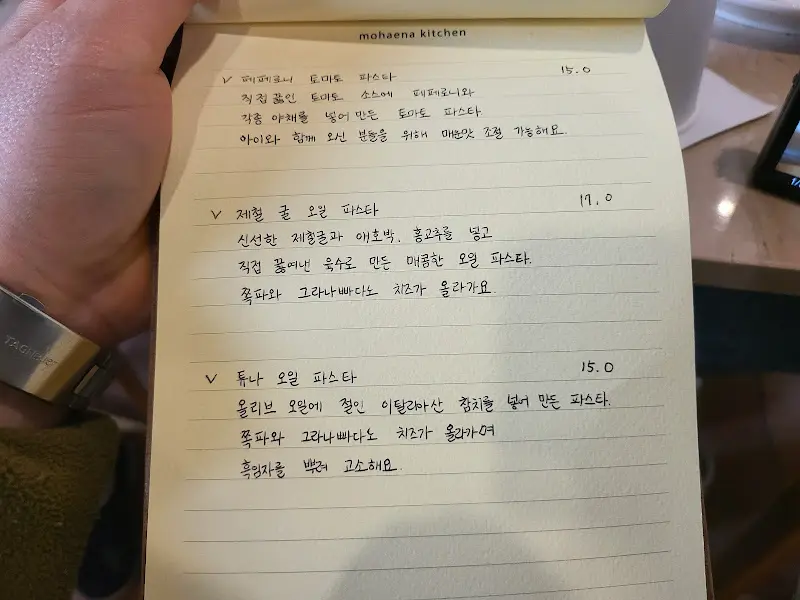 mohaena kitchen
V 페페로니 토마토 파스타 15.0
직접 끓인 토마토 소스에 페페로니와
각종 야채를 넣어 만든 토마토 파스타
아이와 함께 오신 분들을 위해 매운맛 조절 가능해요.
V 제철 굴 오일 파스타 17.0
신선한 제철굴과 애호박, 홍고추를 넣고
직접 끓여낸 육수로 만든 매콤한 오일 파스타.
쪽파와 그라나빠다노 치즈가 올라가요.
V 튜나 오일 파스타 15.0
올리브 오일에 절인 이탈리아산 참치를 넣어 만든 파스타.
쪽파와 그라나빠다노 치즈가 올라가며
흑임자를 뿌려 고소해요.
TAGHeuer